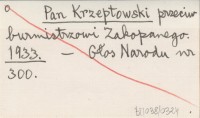 Pan Krzeptowski przeciw
burmistrzowi Zakopanego.
1933. — Głos Narodu nr
300.